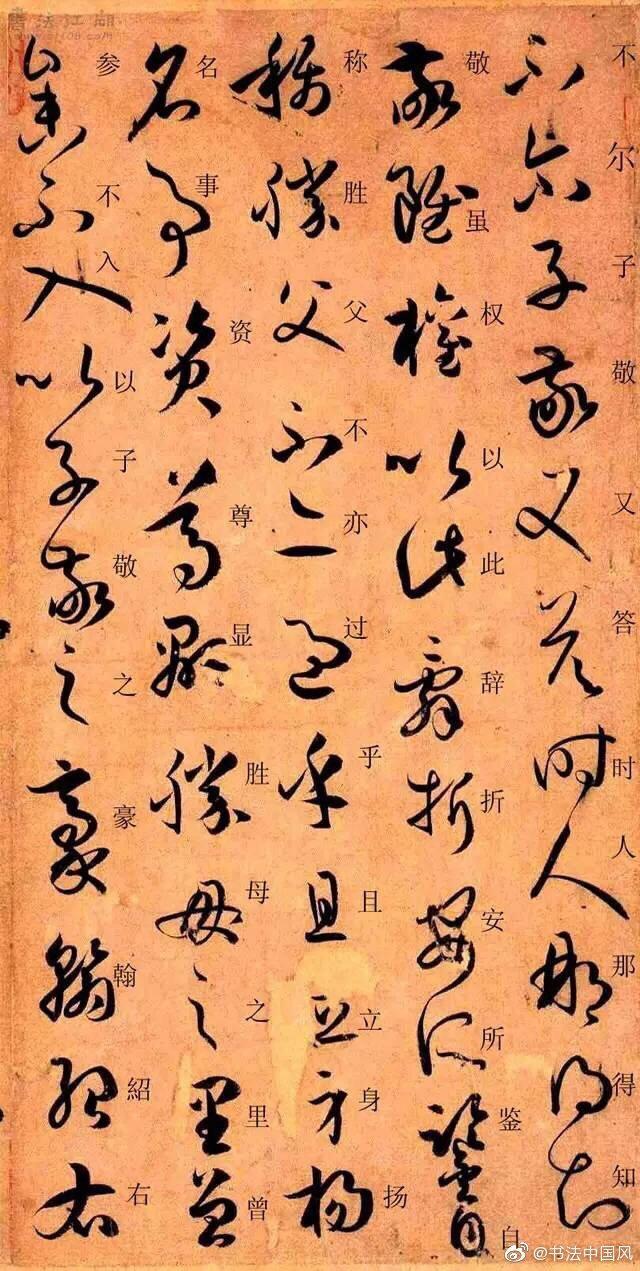 不尔子敬又答时人那得知
敬虽权以此辞折安所鉴自
称胜父不亦过乎且立身扬
名事资尊显胜母之里曾
参不入以子敬之豪翰紹右
書法江湖
@书法中国风